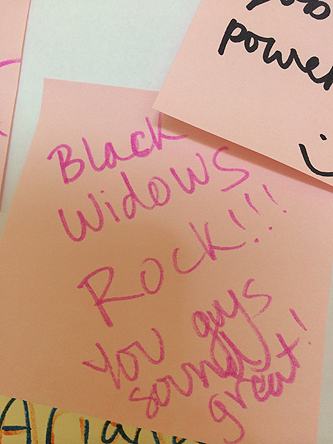 power
Black
Widows
Rock!!!
You guys
sound
great!